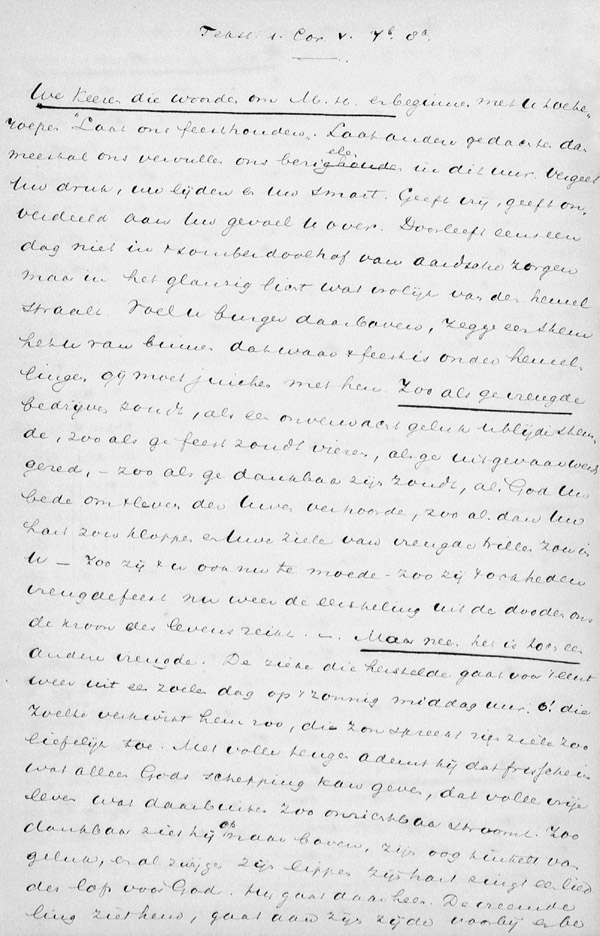 Tekst 1. Cor. V. 7b 8a.
We keeren die woorden om M. H. en beginnen met U toe te
roepen "Laat ons feesthouden". Laat andere gedachte dan
meestal ons vervullen ons bezig houden in dit uur. Vergeet
Uw druk, uw lijden en Uw smart. Geeft vrij, geeft on,
verdeeld aan Uw gevoel U over. Doorleeft eens een
dag niet in 't somber doolhof van aardsche zorgen
maar in het glansrig licht wat vrolijk van den hemel
straalt. Voel U burger daarboven, zegge een stem
het U van binnen dat waar 't feest is onder hemel-
lingen gij moet juichen met hen. Zoo als ge vreugde
bedrijven zoudt, als een onverwacht geluk U blijde stem
de, zoo als ge feest zoudt vieren, als ge uit gevaar werdt
gered, – zoo als ge dankbaar zijn zoudt, als God Uw
bede om 't leven der Uwen verhoorde, zoo als dan Uw
hart zou kloppen en Uwe ziele van vreugde trillen zou in
U — Zoo zij 't U ook nu te moede – zoo zij 't ook heden
vreugdefeest nu weer de eersteling uit de dooden ons
de kroon des levens reikt. — Maar neen het is toch een
andere vreugde. De zieke die herstelde gaat voor 't eerst
weer uit een zoele dag op 't zonnig middag uur. o! die
zoelte verkwikt hem zoo, die zon spreekt zijn ziele zoo
liefelijk toe. Met volle teugen ademt hij dat frissche in
wat alleen Gods schepping kan geven, dat volle vrije
leven wat daarbuiten zoo onzichtbaar stroomt. Zoo
dankbaar ziet hij op naar boven, zijn oog tintelt van
geluk, en al zwijgen zijn lippen zijn hart zingt een lied
des lofs voor God. Hij gaat daar heen. De vreemde
ling ziet hem, gaat aan zijn zijde voorbij en be